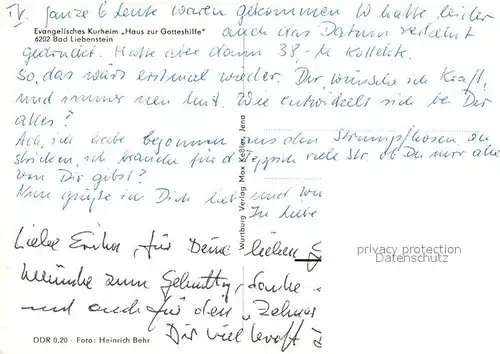 IV. ganze 6 Leute waren gekommen W hatte leider
auch das Datum verkehrt
Evangelisches Kurheim „Haus zur Gotteshilfe"
6202 Bad Liebenstein
gedruckt. Hatte aber dann 38,- M Kollekte.
So, das wärs erstmal wieder. Dir wünsche ich Kraft,
und immer neu Mut. Wie entwickelt sich bei Dir
alles?
Ach, ich habe begonnen aus den Strumpfhosen zu
stricken, ich brauche für d. Teppich viele Str. ob Du mir alte
von Dir gibst?
Nun grüße ich Dich lieb und
In Liebe
Wartburg Verlag Max Keßler, Jena
Liebe Erika, für Deine lieben
Wünsche zum Geburtstag, danke
und auch für den
Dir viel Kraft
privacy protection
Datenschutz
DDR 0,20 · Foto: Heinrich Behr